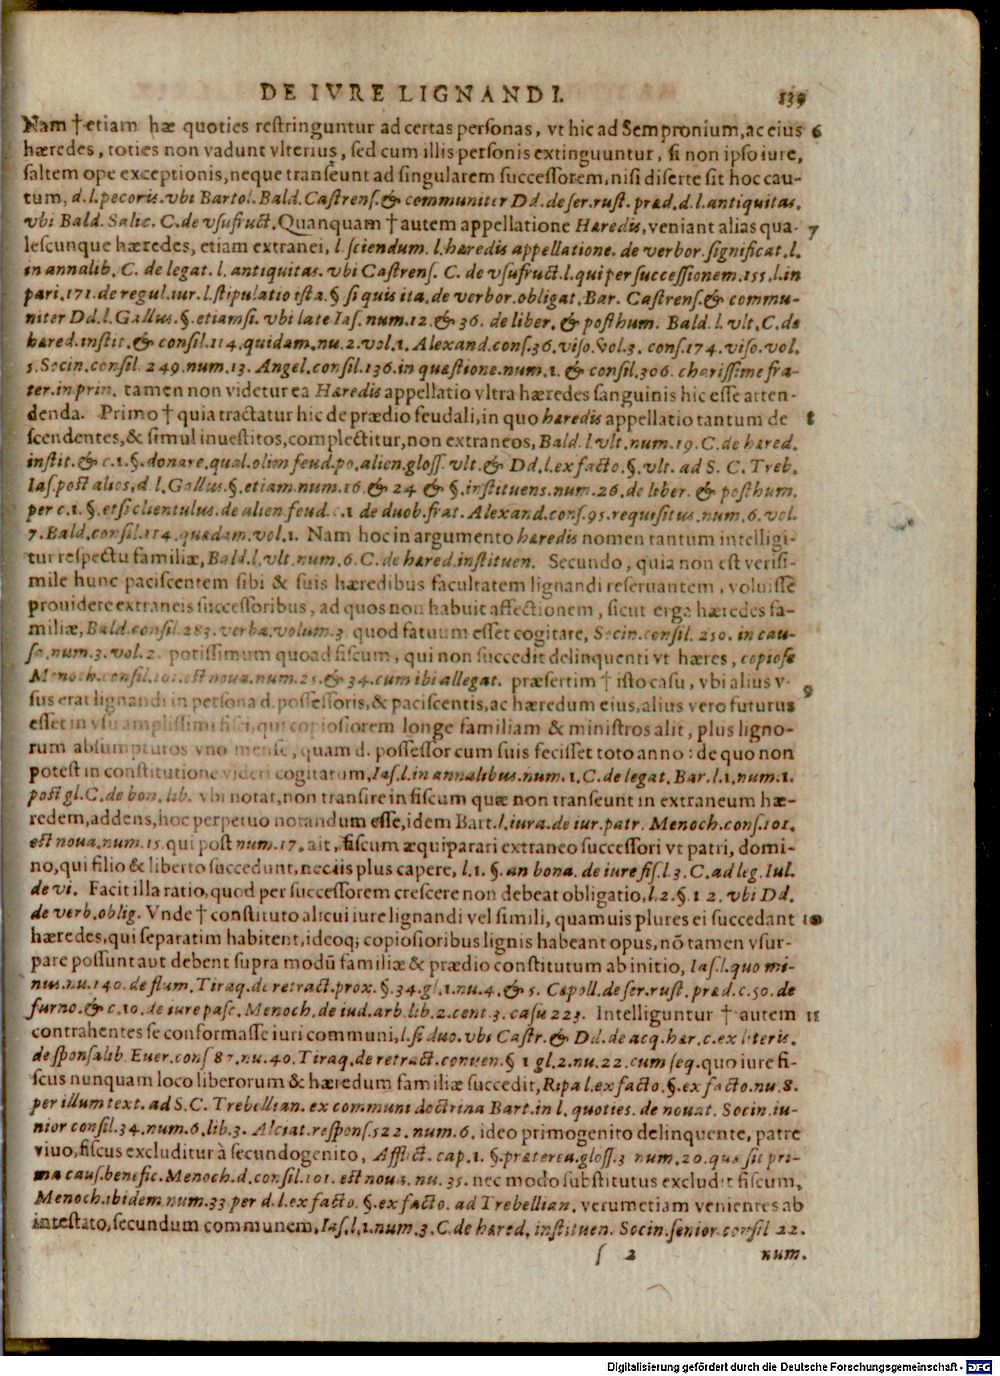 DE IVRE LIGNANDI. 139
Nam † etiam hæ quoties restringuntur ad certas personas, vt hic ad Sempronium, ac eius 6
hæredes, toties non vadunt vlterius, sed cum illis personis extinguuntur, si non ipso iure,
saltem ope exceptionis, neque transeunt ad singularem successorem, nisi diserte sit hoc cau-
tum, d.l. pecoris. vbi Bartol. Bald. Castrens. & communiter Dd. de ser. rust. præd. d.l. antiquitas.
vbi Bald. Salic. C. de vsufruct. Quanquam † autem appellatione Hæredis, veniant alias qua- 7
lescunque hæredes, etiam extranei, l. sciendum. l. hæredis appellatione. de verbor. significat. l.
in annalib. C. de legat. l. antiquitas. vbi Castrens. C. de vsufruct. l. qui per successionem. 155. l. in
pari. 171. de regul. iur. l. stipulatio ista. § si quis ita. de verbor. obligat. Bar. Castrens. & commu-
niter Dd. l. Gallus. §. etiamsi. vbi late Ias. num. 12. & 36. de liber. & posthum. Bald. l. vlt. C. de
hæred. instit. & consil. 114. quidam. nu. 2. vol. 1. Alexand. cons. 36. viso. vol. 3. cons. 174. viso. vol.
5. Socin. consil. 249. num. 13. Angel. consil. 136. in quæstione. num. 1. & consil. 306. charissime fra-
ter. in prin. tamen non videtur ea Hæredis appellatio vltra hæredes sanguinis hic esse atten-
denda. Primo † quia tractatur hic de prædio feudali, in quo hæredis appellatio tantum de 8
scendentes, & simul inuestitos, complectitur, non extraneos, Bald. l. vlt. num. 19. C. de hæred.
instit. & c. 1. §. donare. qual. olim feud. po. alien. gloss. vlt. & Dd. l. ex facto. §. vlt. ad S. C. Treb.
Ias. post alios, d. l. Gallus. §. etiam. num. 16. & 24 & §. instituens. num. 26. de liber. & posthum.
per c. 1. §. etsi clientulus. de alien. feud. c. 1 de duob. frat. Alexand. cons. 95. requisitus. num. 6. vol.
7. Bald. consil. 114. quædam. vol. 1. Nam hoc in argumento hæredis nomen tantum intelligi-
tur respectu familiæ, Bald. l. vlt. num. 6. C. de hæred. instituen. Secundo, quia non est verisi-
mile hunc paciscentem sibi & suis hæredibus facultatem lignandi reseruantem, voluisse
prouidere extraneis successoribus, ad quos non habuit affectionem, sicut erga hæredes fa-
miliæ, Bald. consil. 283. verba. volum. 3 quod fatuum esset cogitare, Socin. consil. 250. in cau-
sa. num. 3. vol. 2. potissimum quoad fiscum, qui non succedit delinquenti vt hæres, copiose
Menoch. consil. 101. est noua. num. 25. & 34. cum ibi allegat. præsertim † isto casu, vbi alius v- 9
sus erat lignandi in persona d. possessoris, & paciscentis, ac hæredum eius, alius vero futurus
esset in vsu amplissimi fisci, qui copiosiorem longe familiam & ministros alit, plus ligno-
rum absumpturos vno mense, quam d. possessor cum suis fecisset toto anno: de quo non
potest in constitutione videri cogitatum, Ias. l. in annalibus. num. 1. C. de legat. Bar. l. 1. num. 1.
post gl. C. de bon. lib. vbi notat, non transire in fiscum quæ non transeunt in extraneum hæ-
redem, addens, hoc perpetuo notandum esse, idem Bart. l. iura. de iur. patr. Menoch. cons. 101.
est noua. num. 15. qui post num. 17. ait, fiscum æquiparari extraneo successori vt patri, domi-
no, qui filio & liberto succedunt, nec iis plus capere, l. 1. §. an bona. de iure fis. l. 3. C. ad leg. Iul.
de vi. Facit illa ratio, quod per successorem crescere non debeat obligatio, l. 2. §. 1 2. vbi Dd.
de verb. oblig. Vnde † constituto alicui iure lignandi vel simili, quamuis plures ei succedant 10
hæredes, qui separatim habitent, ideoq; copiosioribus lignis habeant opus, nō tamen vsur-
pare possunt aut debent supra modū familiæ & prædio constitutum ab initio, Ias. l. quo mi-
nus. nu. 140. de flum. Tiraq. de retract. prox. §. 34. gl. 1. nu. 4. & 5. Cæpoll. de ser. rust. præd. c. 50. de
furno. & c. 10. de iure pasc. Menoch. de iud. arb. lib. 2. cent. 3. casu 223. Intelliguntur † autem 11
contrahentes se conformasse iuri communi, l. si duo. vbi Castr. & Dd. de acq. hær. c. ex literis.
de sponsalib. Euer. cons 87. nu. 40. Tiraq. de retract. conuen. § 1 gl. 2. nu. 22. cum seq. quo iure fi-
scus nunquam loco liberorum & hæredum familiæ succedit, Ripa l. ex facto. §. ex facto. nu. 8.
per illum text. ad S. C. Trebellian. ex communi doctrina Bart. in l. quoties. de nouat. Socin. iu-
nior consil. 34. num. 6. lib. 3. Alciat. respons. 522. num. 6. ideo primogenito delinquente, patre
viuo, fiscus excluditur à secundogenito, Afflict. cap. 1. §. præterea. gloss. 3 num. 20. quæ sit pri-
ma caus. benefic. Menoch. d. consil. 101. est noua. nu. 35. nec modo substitutus excludit fiscum,
Menoch. ibidem num. 33 per d. l. ex facto. §. ex facto. ad Trebellian. verum etiam venientes ab
intestato, secundum communem, Ias. l. 1. num. 3. C. de hæred. instituen. Socin. senior consil 22.
s 2 num.
Digitalisierung gefördert durch die Deutsche Forschungsgemeinschaft - DFG